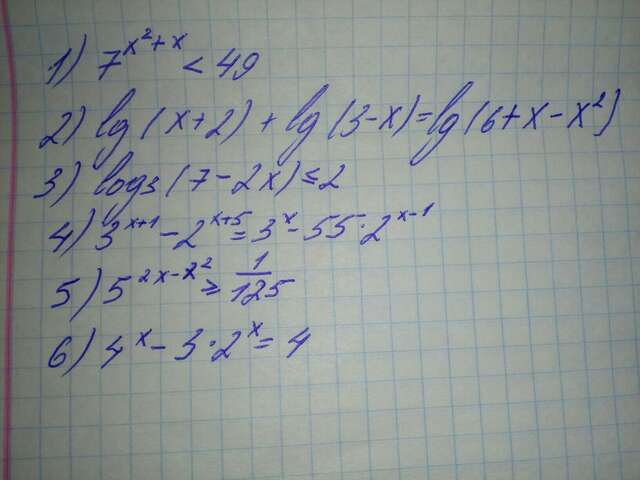 1) 7^{x²+x} < 49
2) lg(x+2) + lg(3-x) = lg(6+x-x²)
3) log₃(7-2x) ≤ 2
4) 3^{x+1} - 2^{x+5} = 3^x - 55·2^{x-1}
5) 5^{2x-x²} ≥ 1/125
6) 4^x - 3·2^x = 4